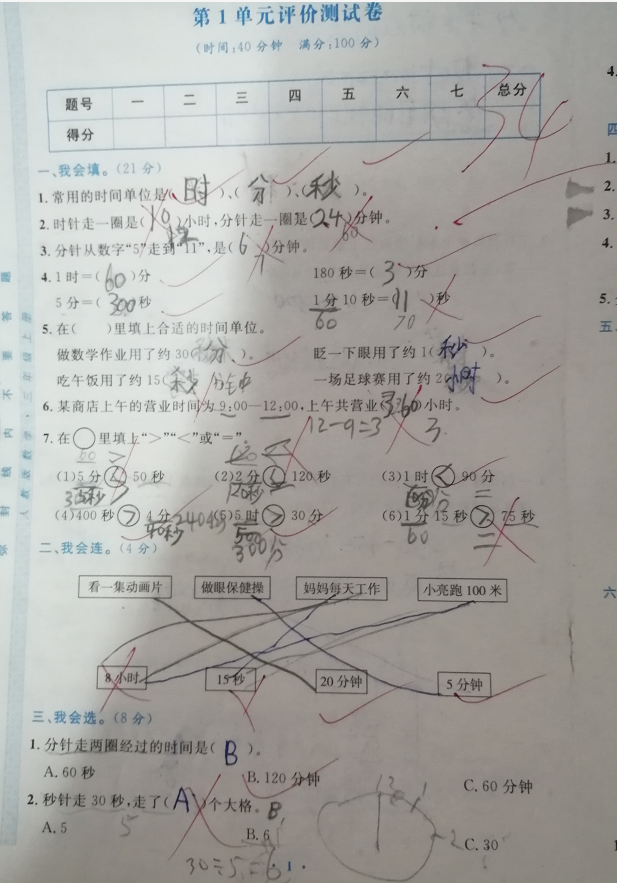 第1单元评价测试卷
(时间:40分钟 满分:100分)
34
题号 一 二 三 四 五 六 七 总分
得分
一、我会填。(21分)
1.常用的时间单位是(时)、(分)、(秒)。
2.时针走一圈是( )小时,分针走一圈是(24)分钟。
12 60
3.分针从数字“5”走到“11”,是(6)分钟。
4.1时=(60)分 180秒=(3)分
5分=(300)秒 1分10秒=(11)秒
60 70
5.在( )里填上合适的时间单位。
做数学作业用了约30(分)。 眨一下眼用了约1(秒)。
吃午饭用了约15(秒)分钟 一场足球赛用了约2(小时)。
6.某商店上午的营业时间为9:00—12:00,上午共营业( )小时。
12-9=3 3
7.在○里填上“>”“<”或“=”。
(1)5分 50秒 (2)2分 120秒 (3)1时<90分
(4)400秒>4分 240秒 (5)5时>30分 (6)1分15秒>75秒
300分 60 =
二、我会连。(4分)
看一集动画片 做眼保健操 妈妈每天工作 小亮跑100米
8小时 15秒 20分钟 5分钟
三、我会选。(8分)
1.分针走两圈经过的时间是(B)。
A.60秒 B.120分钟 C.60分钟
2.秒针走30秒,走了(A)个大格。B
A.5 B.6 C.30
5
30÷5=6
12 1 2
·1·
4.
四
1.
2.
3.
4.
5.
五、
六